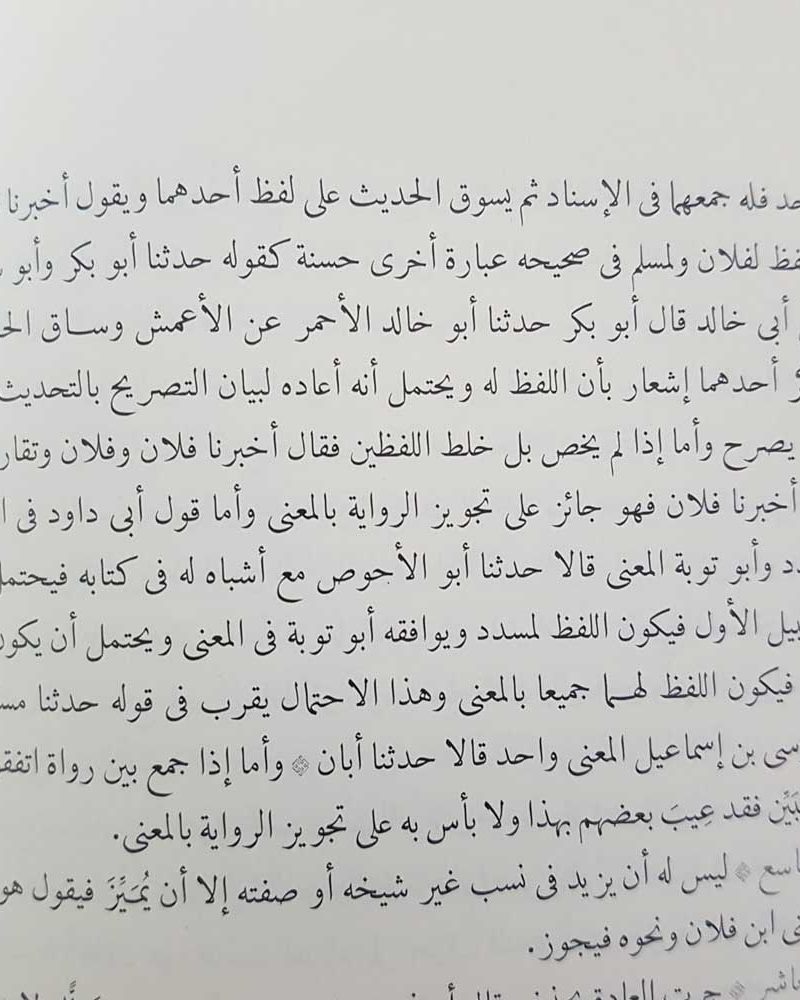 فله جمعهما فى الإسناد ثم يسوق الحديث على لفظ أحدهما ويقول أخبرنا
لفلان ولمسلم فى صحيحه عبارة أخرى حسنة كقوله حدثنا أبو بكر وأبو
أبى خالد قال أبو بكر حدثنا أبو خالد الأحمر عن الأعمش وساق
أحدهما إشعار بأن اللفظ له ويحتمل أنه أعاده لبيان التصريح بالتحديث
يصرح وأما إذا لم يخص بل خلط اللفظين فقال أخبرنا فلان وفلان
أخبرنا فلان فهو جائز على تجويز الرواية بالمعنى وأما قول أبى داود فى
وأبو توبة المعنى قالا حدثنا أبو الأحوص مع أشباه له فى كتابه
الأول فيكون اللفظ لمسدد ويوافقه أبو توبة فى المعنى ويحتمل أن
فيكون اللفظ لهما جميعا بالمعنى وهذا الاحتمال يقرب فى قوله حدثنا
بن إسماعيل المعنى واحد قالا حدثنا أبان ۞ وأما إذا جمع بين رواة
فقد عِيبَ بعضهم بهذا ولا بأس به على تجويز الرواية بالمعنى.
ليس له أن يزيد فى نسب غير شيخه أو صفته إلا أن يُمَيِّزَ فيقول هو
ابن فلان ونحوه فيجوز.
جرت العادة